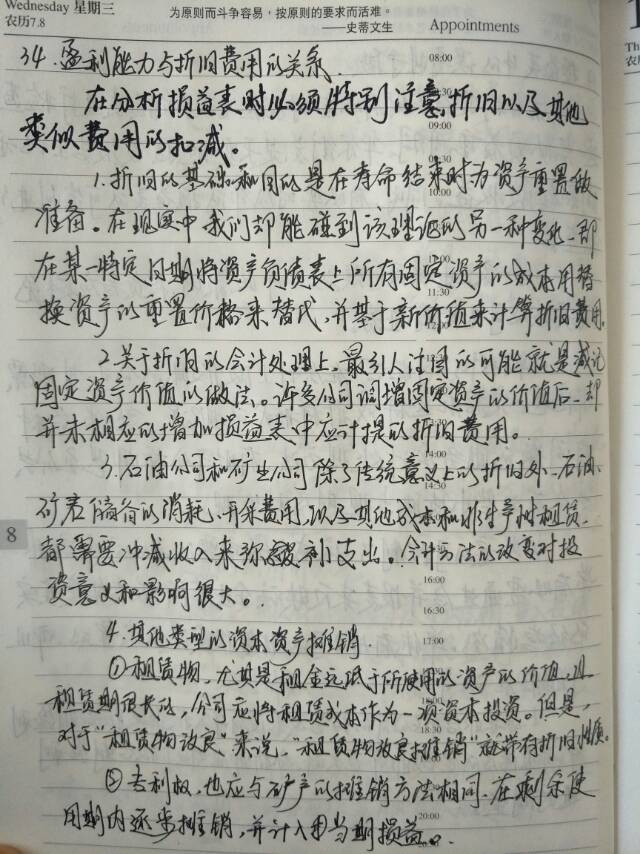 Wednesday 星期三
农历7.8
为原则而斗争容易，按原则的要求而活难。
——史蒂文生
Appointments
34. 盈利能力与折旧费用的关系.
08:00
在分析损益表时必须特别注意折旧以及其他
类似费用的扣减。
09:00
1. 折旧的基础和目的是在寿命结束时为资产重置做
10:00
准备。在现实中我们却能碰到该理论的另一种变化, 即
在某一特定日期将资产负债表上所有固定资产的成本用替
11:30
换资产的重置价格来替代, 并基于新价值来计算折旧费用.
2. 关于折旧的会计处理上, 最引人注目的可能就是减记
固定资产价值的做法。许多公司调增固定资产的价值后, 却
并未相应的增加损益表中应计提的折旧费用。
14:00
3. 石油公司和矿业公司除了传统意义上的折旧外, 石油、
14:30
矿产储备的消耗、开采费用, 以及其他成本和非生产性租赁,
8
都需要冲减收入来弥补支出。会计方法的改变对投
16:00
资意义和影响很大。
16:30
4. 其他类型的资本资产摊销.
17:00
①租赁物, 尤其是租金远低于所使用的资产的价值, 且
租赁期很长的, 公司应将租赁成本作为一项资本投资。但是,
18:30
对于“租赁物改良”来说, “租赁物改良摊销”就带有折旧性质。
②专利权, 也应与矿产的摊销方法相同, 在剩余使
20:00
用期内逐步摊销, 并计入当期损益。